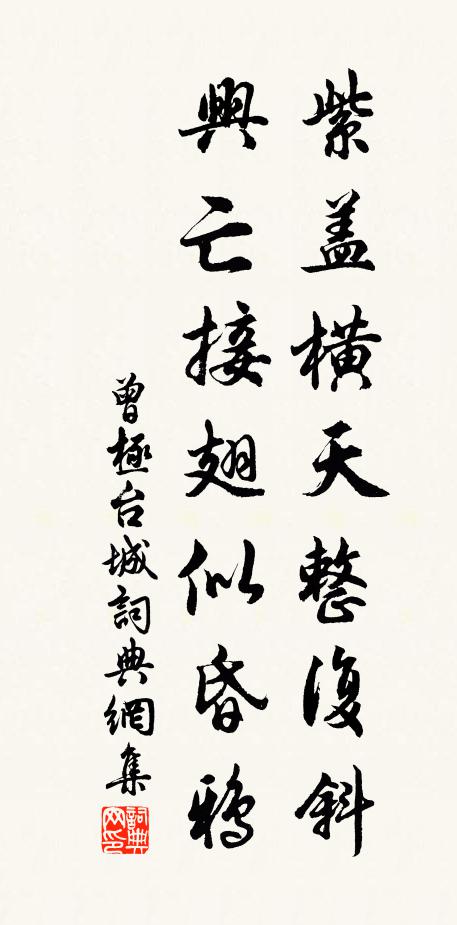 紫盖横天整復斜
興亡接翅似昏鴉
曾極台城詞典網集
詞典網印